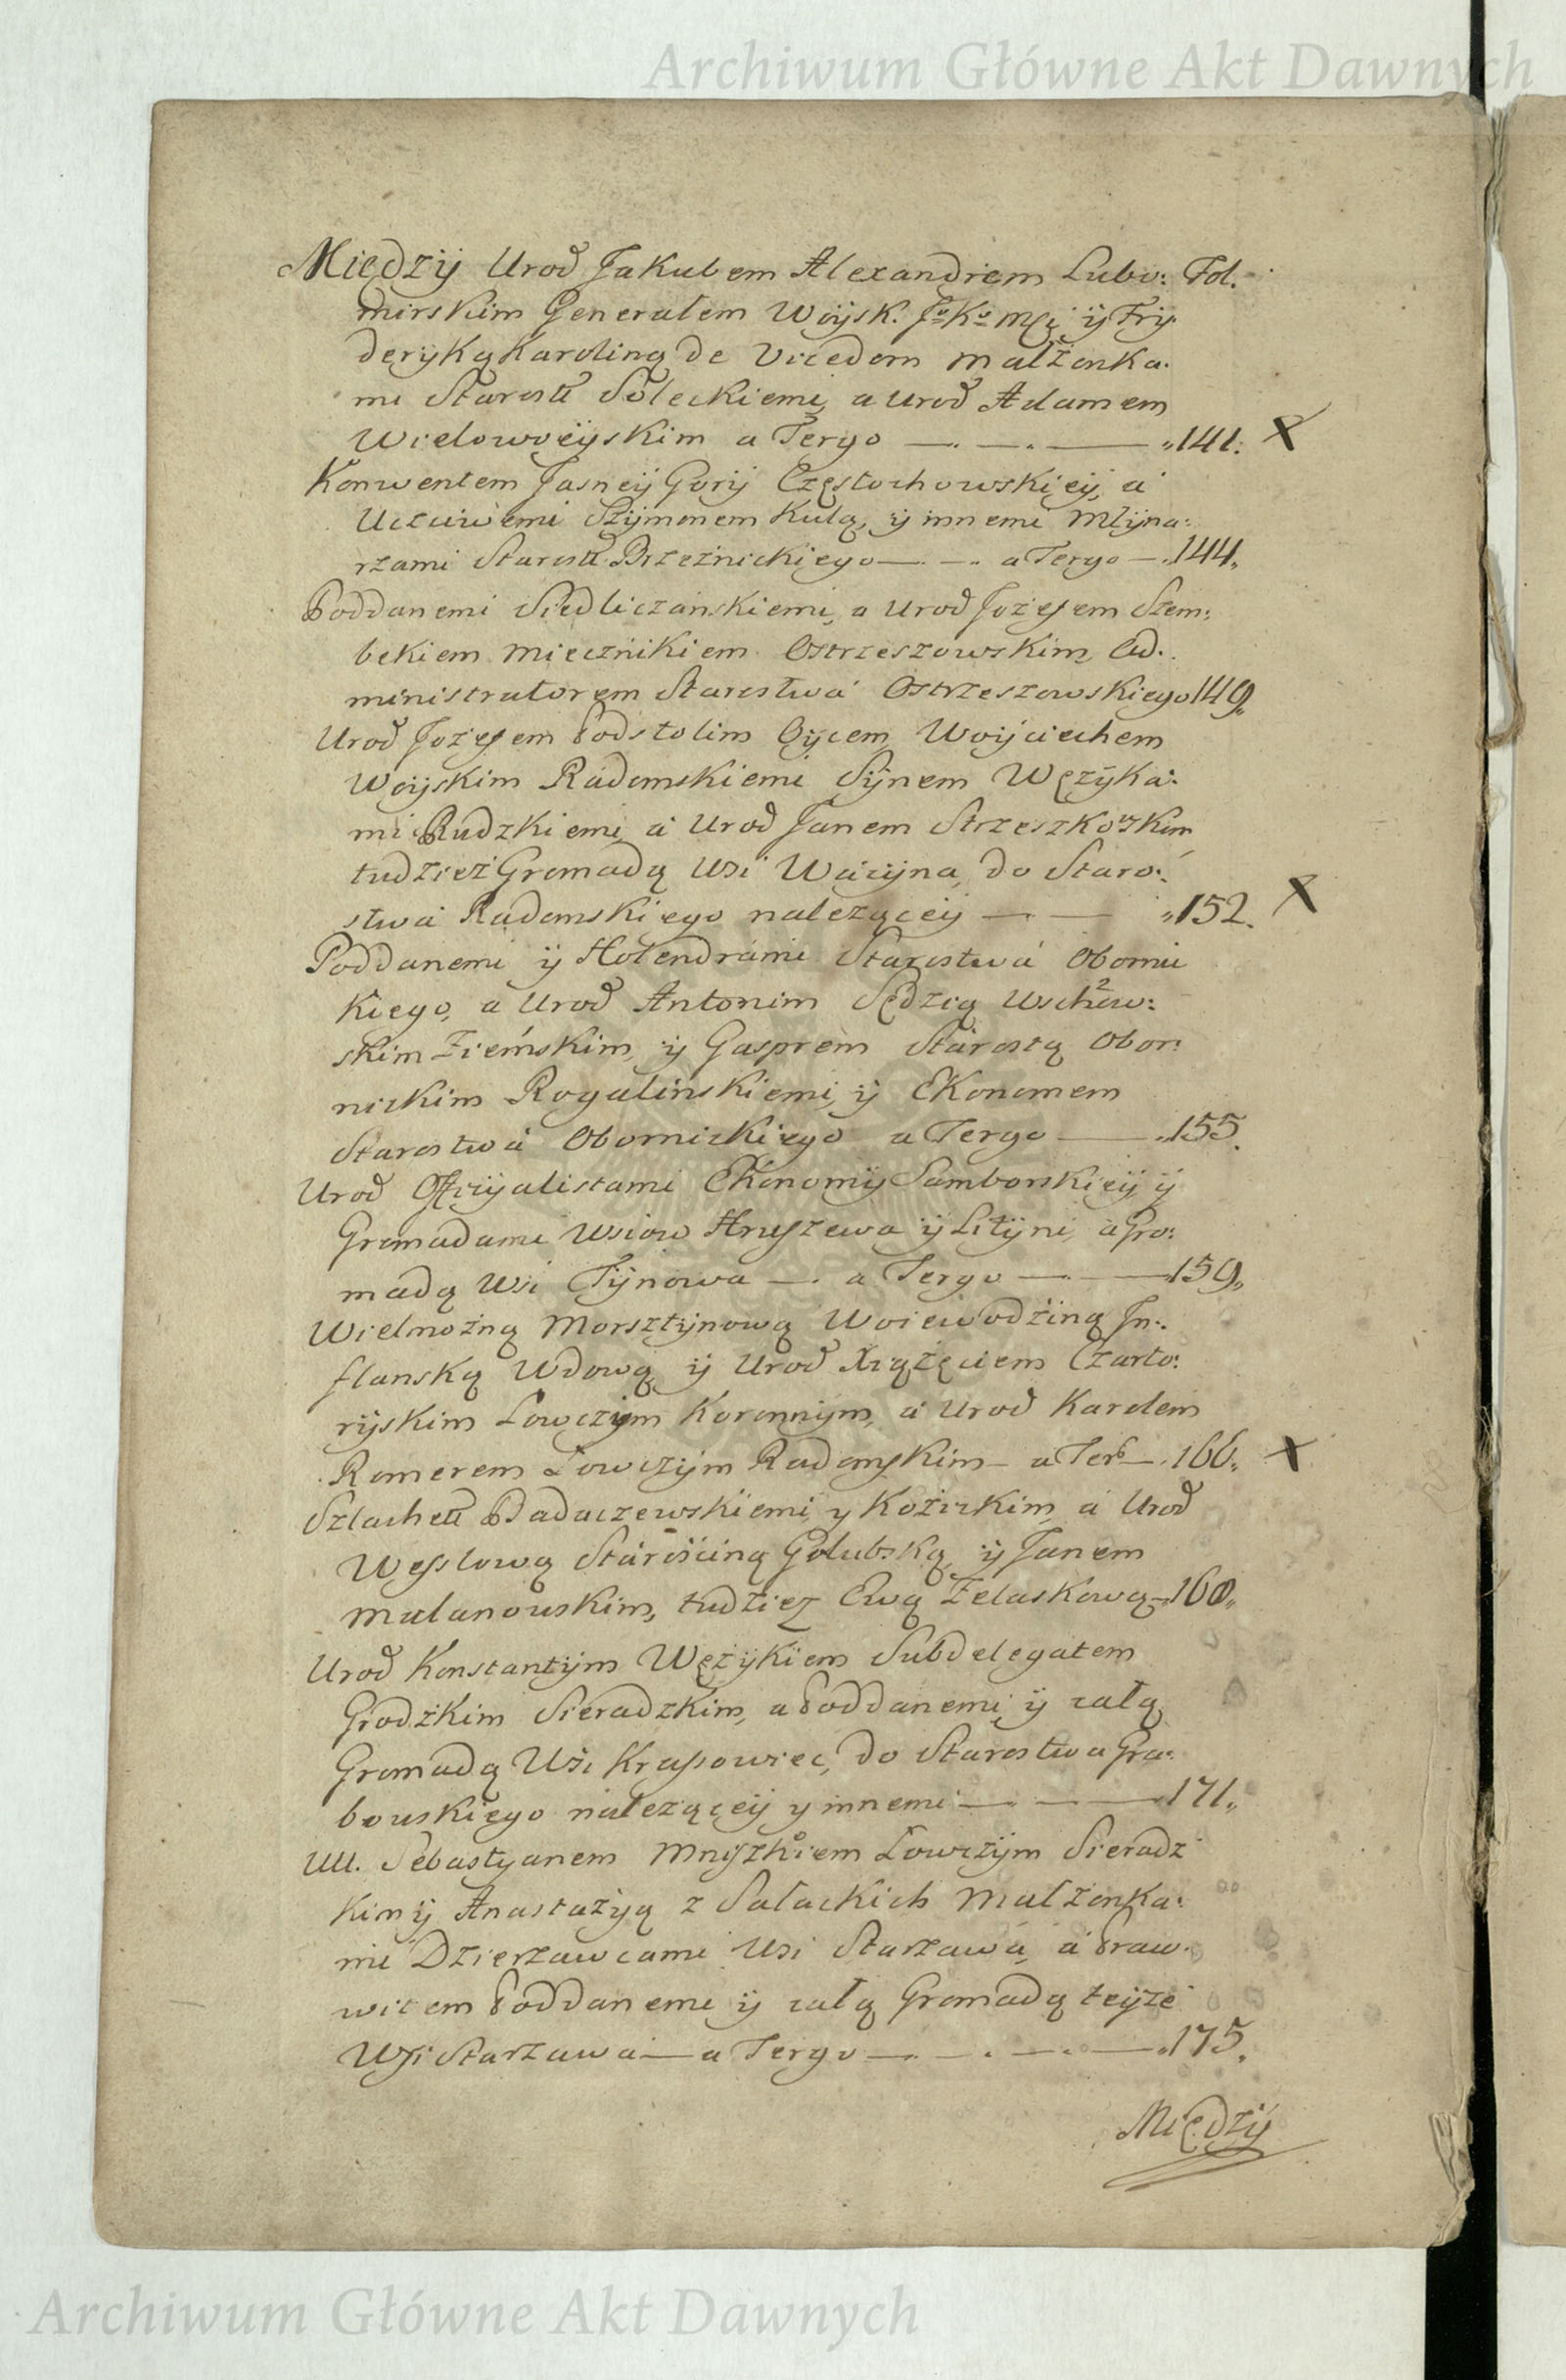 Archiwum Główne Akt Dawnych
Między Urod Jakubem Alexandrem Lubo: Fol.
mirskim Generałem Woysk. Jo Ko Mci y Fry
deryką Karoliną de Vicedom Małżonka:
mi Starost Soleckiemi, a Urod Adamem
Wielowieyskim a Tergo —. —. — „141.
Konwentem Jasney Gory Częstochowskiey, a
Uczciwemi Szymonem Kulą, y innemi Młyna:
rzami Starost Brzeznickiego —. —. a Tergo —. 144„
Poddanemi Siedliczanskiemi, a Urod Jozefem Szem:
bekiem Miecznikiem Ostrzeszowskim, Ad:
ministratorem Starostwa Ostrzeszowskiego 149„
Urod Jozefem Podstolim Oycem, Woyciechem
Woyskim Radomskiemi Synem Wężyka:
mi Rudzkiemi, a Urod Janem Strzeszkowskim
tudzież Gromadą Wsi Wacyna, do Staro:
stwa Radomskiego należącey —. — „152.
Poddanemi y Holendrami Starostwa Obornic
kiego, a Urod Antonim Sędzią Wschow:
skim Ziemskim, y Gasprem Starostą Obor:
nickim Rogalinskiemi, y Ekonomem
Starostwa Obornickiego a Tergo — „155.
Urod Officyalistami Ekonomij Samborskiey y
Gromadami Wsiow Hruszewa y Lityni, a Gro:
madą Wsi Tynowa —. a Tergo —. — 159„
Wielmożną Morsztynową Woiewodziną In:
flanską Wdową, y Urod Xiążęciem Czarto:
ryskim Łowczym Koronnym, a Urod Karolem
Romerem Łowczym Radomskim — a Ter —. 166„
Szlachet Badaczewskiemi, y Kozickim, a Urod
Wesslową Starościną Golubską, y Janem
Malanowskim, tudzież Ewą Żelaskową —. 168„
Urod Konstantym Wężykiem Subdelegatem
Grodzkim Sieradzkim, a Poddanemi, y całą
Gromadą Wsi Krassowiec, do Starostwa Gra:
bowskiego należącey y innemi —. — — 171„
UU. Sebastyanem Mnyszkiem Łowczym Sieradz
kim y Anastazyą z Sałackich Małżonka:
mi Dzierzawcami Wsi Starzawa, a Praw:
witem Poddanemi y całą Gromadą teyże
Wsi Starzawa — a Tergo —. —. —. — „175.
Między
Archiwum Główne Akt Dawnych